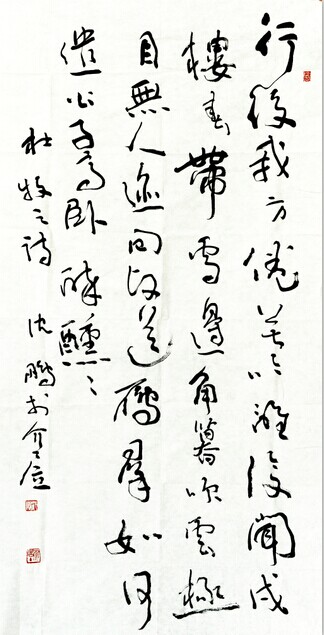 行役我方倦苦吟誰復聞戍
樓春帶雪邊角暮吹雲極
目無人迹回頭送鴈羣如何
遣公子高卧醉醺〻
杜牧之詩 沈鵬於介居